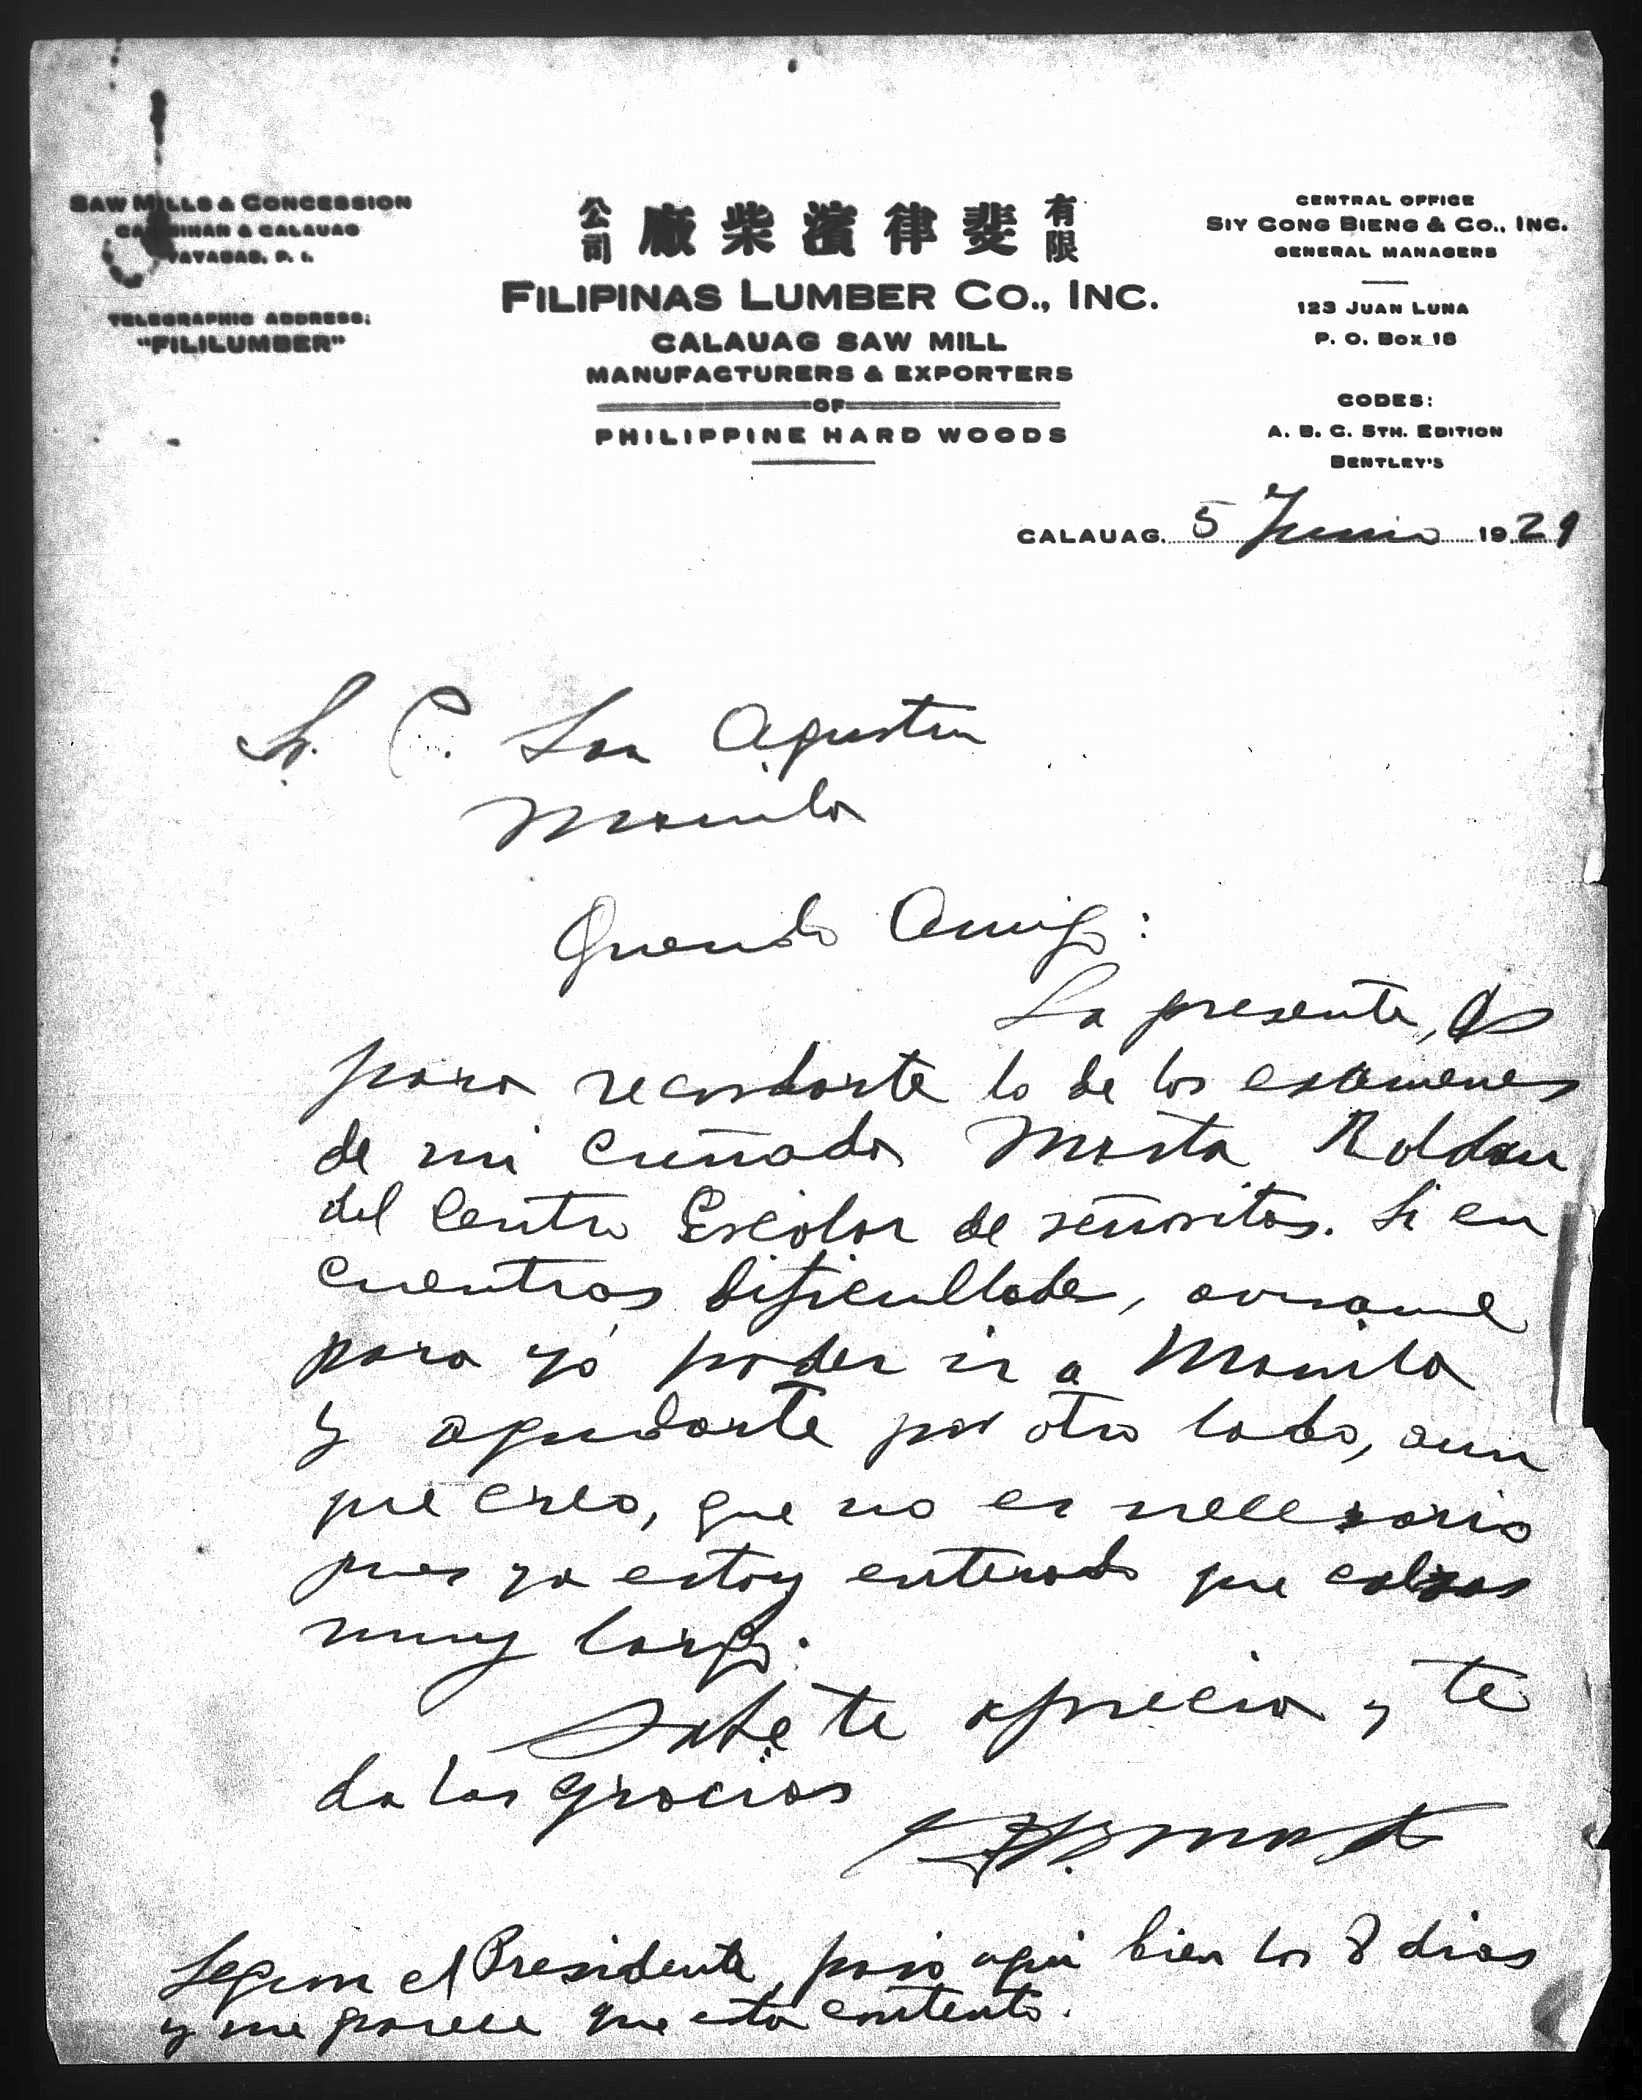 SAW MILLS & CONCESSION
& CALAUAG
TAYABAS, P. I.
TELEGRAPHIC ADDRESS:
"FILILUMBER"
公司 廠柴濱律斐 有限
FILIPINAS LUMBER CO., INC.
CALAUAG SAW MILL
MANUFACTURERS & EXPORTERS
OF
PHILIPPINE HARD WOODS
CENTRAL OFFICE
SIY CONG BIENG & CO., INC.
GENERAL MANAGERS
123 JUAN LUNA
P. O. BOX 18
CODES:
A. B. C. 5TH. EDITION
BENTLEY'S
CALAUAG. 5 Junio 1929
Sr. C. San Agustin
Manila
Querido Amigo:
La presente, es
para recordarte lo de los examenes
de mi cuñada Marta Roldan
del Centro Escolar de señoritas. Si en
cuentras dificultades, avisame
para yo poder ir a Manila
y ayudarte por otro lado, aun
que creo, que no es necesario
pues ya estoy enterado que calzas
muy largo.
Sabe te aprecia y te
da las gracias
Segun el Presidente, paso aqui bien los 8 dias
y me parece que esta contento.